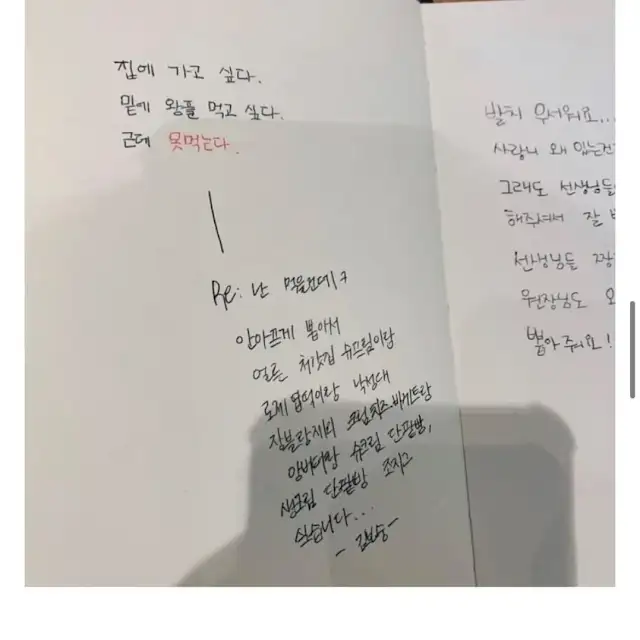 집에 가고 싶다.
밑에 왕뿔 먹고 싶다.
근데 못먹는다.
Re: 난 먹을건데ㅋ
안아프게 뽑아서
얼른 처갓집 슈프림이랑
로제 엽떡이랑 낙성대
쟝블랑제리 크림치즈바게트랑
앙버터랑 슈크림 단팥빵,
생크림 단팥빵 조지고
싶습니다...
발치 무서워요...
사랑니 왜 있는건
그래도 선생님들
해주셔서 잘
선생님들 짱
원장님도
뽑아 주세요!